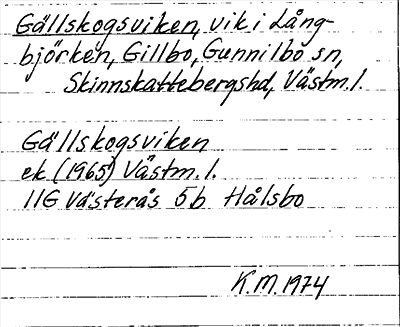 Gällskogsviken, vik i Lång-
björken, Gillbo, Gunnilbo sn,
Skinnskattebergshd, Västm.l.
Gällskogsviken
ek (1965) Västm.l.
11G Västerås 5b Hålsbo
K.M. 1974